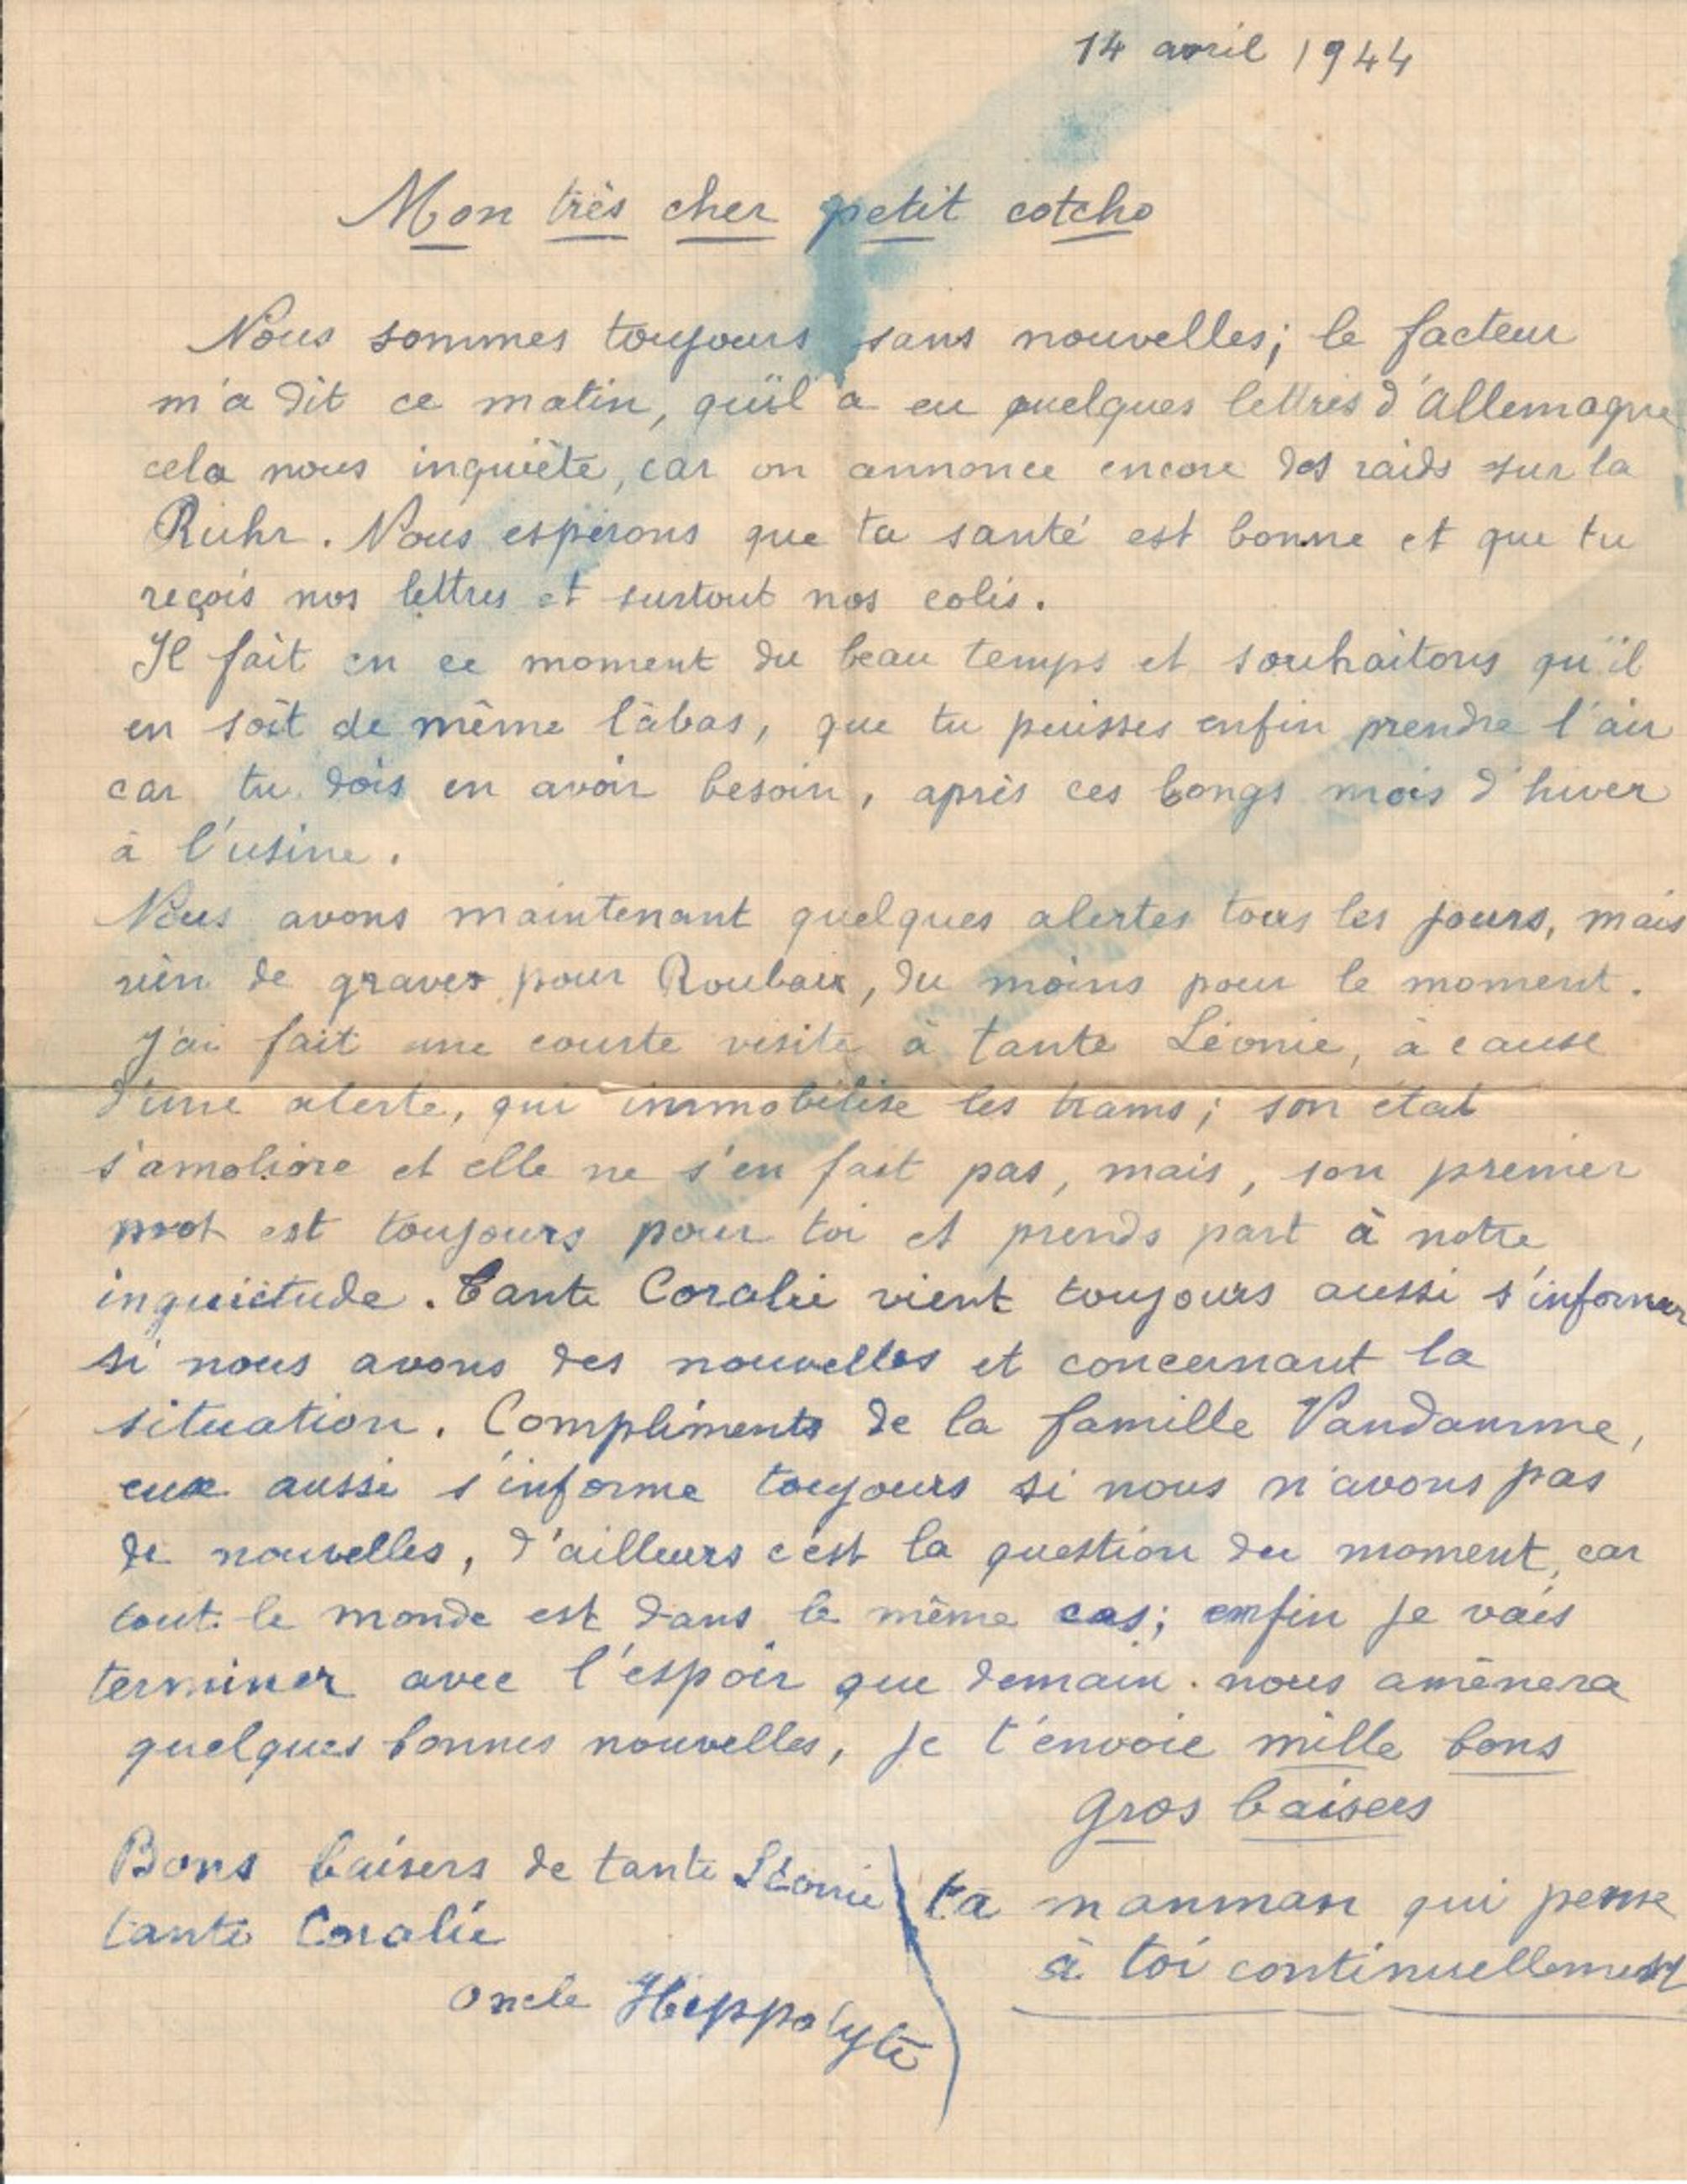 14 avril 1944
Mon très cher petit cotcho
Nous sommes toujours sans nouvelles; le facteur
m'a dit ce matin, qu'il a eu quelques lettres d'Allemagne
cela nous inquiète, car on annonce encore des raids sur la
Ruhr. Nous espérons que ta santé est bonne et que tu
reçois nos lettres et surtout nos colis.
Il fait en ce moment du beau temps et souhaitons qu'il
en soit de même làbas, que tu puisses enfin prendre l'air
car tu dois en avoir besoin, après ces longs mois d'hiver
à l'usine.
Nous avons maintenant quelques alertes tous les jours, mais
rien de graves pour Roubaix, du moins pour le moment.
J'ai fait une courte visite à tante Léonie, à cause
d'une alerte, qui immobilise les trams; son état
s'améliore et elle ne s'en fait pas, mais, son premier
mot est toujours pour toi et prends part à notre
inquiétude. Tante Coralie vient toujours aussi s'informer
si nous avons des nouvelles et concernant la
situation. Compliments de la famille Vandamme,
eux aussi s'informe toujours si nous n'avons pas
de nouvelles, d'ailleurs c'est la question du moment, car
tout le monde est dans le même cas; enfin je vais
terminer avec l'espoir que demain nous amènera
quelques bonnes nouvelles, je t'envoie mille bons
gros baisers
Bons baisers de tante Léonie
tante Coralie
oncle Hippolyte
ta manman qui pense
à toi continuellement